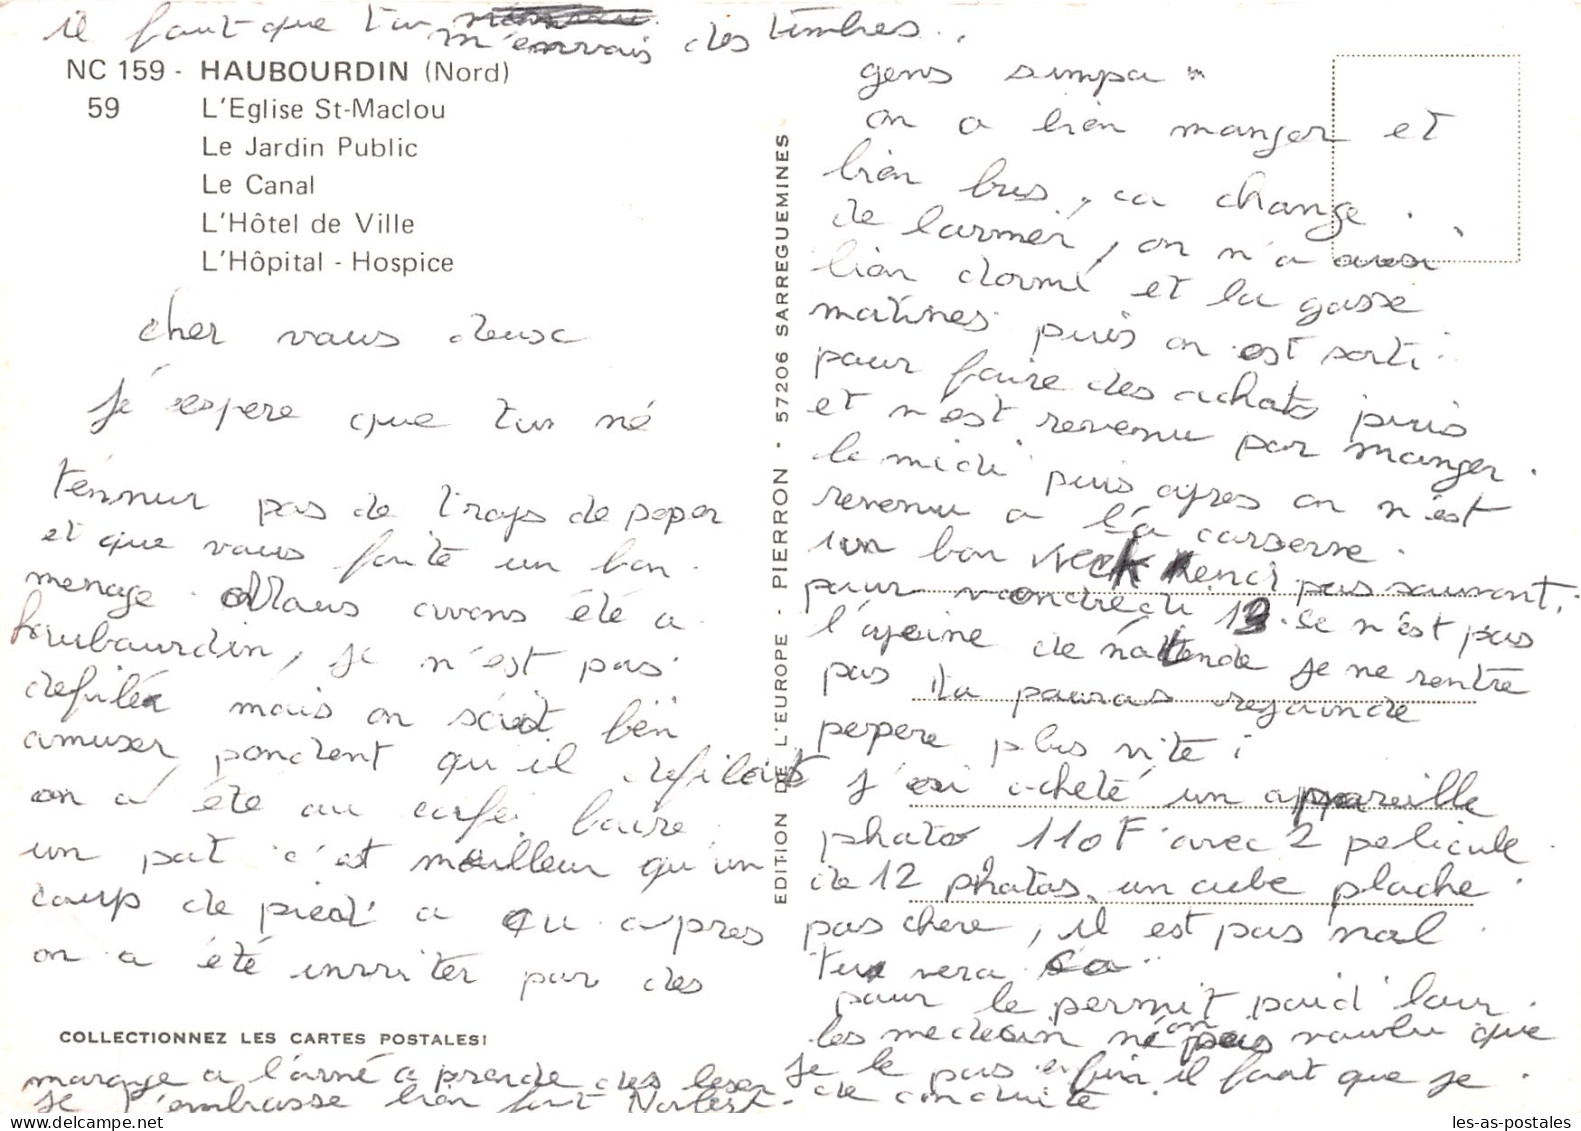 il faut que tu m'envais des timbres.
NC 159 - HAUBOURDIN (Nord)
59 L'Eglise St-Maclou
Le Jardin Public
Le Canal
L'Hôtel de Ville
L'Hôpital - Hospice
cher vous deux
j'espere que tu né
t'énnui pas de trops de peper
et que vous faite un bon
menage. Nous avons été a
haubourdin, je n'est pas
défilér mais on s'est bien
amuser pendent qu'il defilait
on a été au café boire
un pot c'est meilleur qu'un
coup de pied a qu apres
on a été inviter par des
COLLECTIONNEZ LES CARTES POSTALES!
EDITION DE L'EUROPE - PIERRON - 57206 SARREGUEMINES
gens simpa
on a bien manger et
bien bus, ca change
de larmér, on n'a ausi
bien dormi et la gassé
matines puis on est sorti
pour faire des achats puis
et n'est revenu par manger
le midi puis apres on n'est
revenu a la caserne.
un bon week kend pas souvant.
pour vendrédi 13. se n'est pas
l'apeine de n'attende je ne rentre
pas tu pouras rejoindre
pepere plus vite!
j'ai acheté un appareille
photo 110F avec 2 pelicule
de 12 photos, un cube flache
pas chere, il est pas mal
tu vera sa
pour le permit poid lour
les medecin n'on pas voulu que
je le pas enfin il faut que je
marage a l'armé a prende des leser
de conduite
je t'embrasse bien fort Norbert.
les-as-postales.com